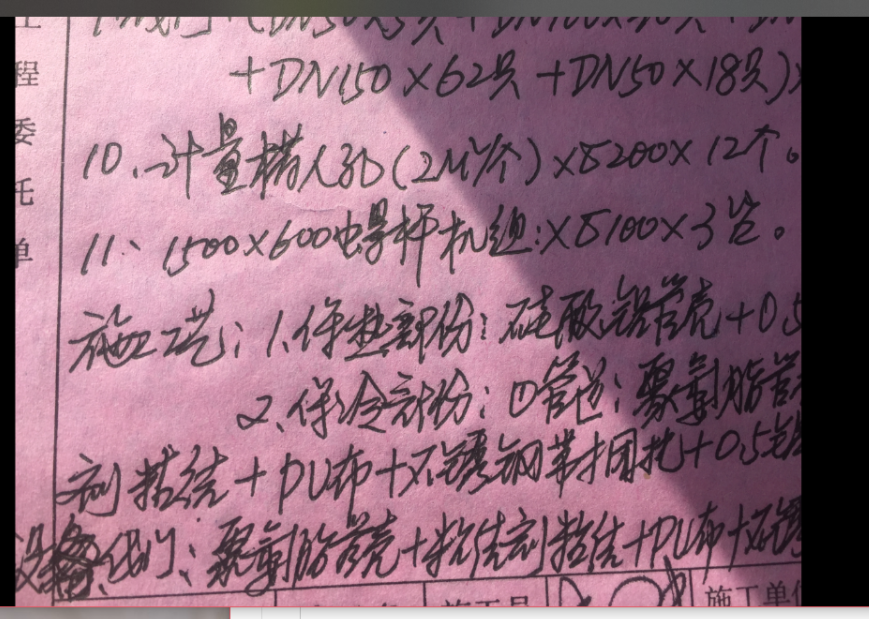 +DN150×62只+DN50×18只)×
10、计量槽人孔(2M²/个)×8200×12个。
11、1500×600螺杆机组:×8100×3台。
施工艺:1.保热部份:硅酸铝管壳+0.5
2、保冷部份:①管道:聚氨脂管
剂粘结+PU布+不锈钢带捆扎+0.5铝
设备、阀门:聚氨脂管壳+粘结剂粘结+PU布+不锈
程
委
托
单
施工员
施工单位